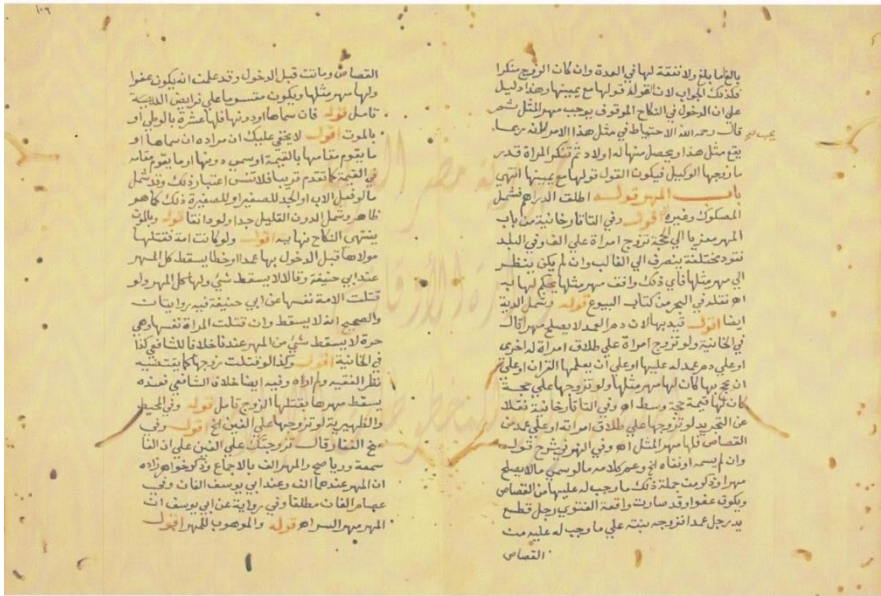 بالغا ما بلغ ولا نفقة لها في العدة وان كان الزوج منكرا
فكذلك الجواب لان القول قولها مع يمينها وهذا دليل
على ان الدخول في النكاح الموقوف يوجب مهر المثل ثم
قال رحمه الله الاحتياط في مثل هذا الامر لانه ربما
يقع مثل هذا ويحصل منها له اولاد ثم تنكر المراة قدر
ما زوجها الوكيل فيكون القول قولها مع يمينها انتهى
باب المهر قوله اطلقت الدراهم فشمل
المسكوك وغيره اقول وفي التاتارخانية من باب
المهر معزيا الي الحجة تزوج امراة علي الف وفي البلد
نقود مختلفة ينصرف الي الغالب وان لم يكن ينظر
الي مهر مثلها فاي ذلك وافق مهر مثلها يحكم لها به
اه نقله في البحر من كتاب البيوع قوله وشمل الدية
ايضا اقول قيد بها لان دم العمد لا يصلح مهرا قال
في الخانية ولو تزوج امراة علي طلاق امراة له اخرى
او علي دم عمد له عليها او على ان يعلمها القران او علي
ان يحج بها كان لها مهر مثلها ولو تزوجها علي حجة
كان لها قيمة حجة وسط اه وفي التاتارخانية نقلا
عن التجريد لو تزوجها علي طلاق امراته او علي عمد من
القصاص فلها مهر المثل اه وفي النهر في شرح قوله
وان لم يسمه او نفاه الخ وعم كلامه ما لو سمي ما لا يصلح
مهرا وذكر من جملة ذلك ما وجب له عليها من القصاص
ويكون عفوا وقد صارت واقعة الفتوي رجل قطع
يد رجل عمدا فزوجه بنته علي ما وجب له عليه من
القصاص
١٠٦
القصاص وماتت قبل الدخول وقد علمت انه يكون عفوا
ولها مهر مثلها ويكون مقسوما علي فرايض الله
تامل قوله فان سماها او دونها فلها عشرة بالوطي او
بالموت اقول لا يخفي عليك ان مراده ان سماها او
ما يقوم مقامها بالقيمة او سمي دونها او ما يقوم مقامه
في القيمة كما تقدم قريبا فلا تنس اعتبار ذلك وقد شمل
ما لو فعل الاب او الجد للصغير او للصغيرة ذلك كما هو
ظاهر وشمل الدون القليل جدا ولو دانقا قوله وبالموت
ينتهي النكاح نهايته اقول ولو كانت امة فقتلها
مولاها قبل الدخول بها عمدا او خطا يسقط كل المهر
عند ابي حنيفة وقالا لا يسقط شئ ولها كل المهر ولو
قتلت الامة نفسها عن ابي حنيفة فيه روايتان
والصحيح انه لا يسقط وان قتلت المراة نفسها وهي
حرة لا يسقط شئ من المهر عندنا خلافا للشافعي كذا
في الخانية اقول وكذا لو قتلت زوجها كما يقتضيه
نظر الفقيه ولم اراه وفيه ايضا خلاف الشافعي فعنده
يسقط مهرها بقتلها الزوج تامل قوله وفي المحيط
والظهيرية لو تزوجها علي الفين الخ اقول وفي
منح الغفار وقال تزوجتك علي الفين علي ان الفا
سمعة ورياء صح والمهر الف بالاجماع وذكر خواهر زاده
ان المهر عندها الف وعند ابي يوسف الفان وفي
عصام الفان مطلقا وفي رواية عن ابي يوسف ان
المهر مهر السر اه قوله والموهوب للمهر اقول